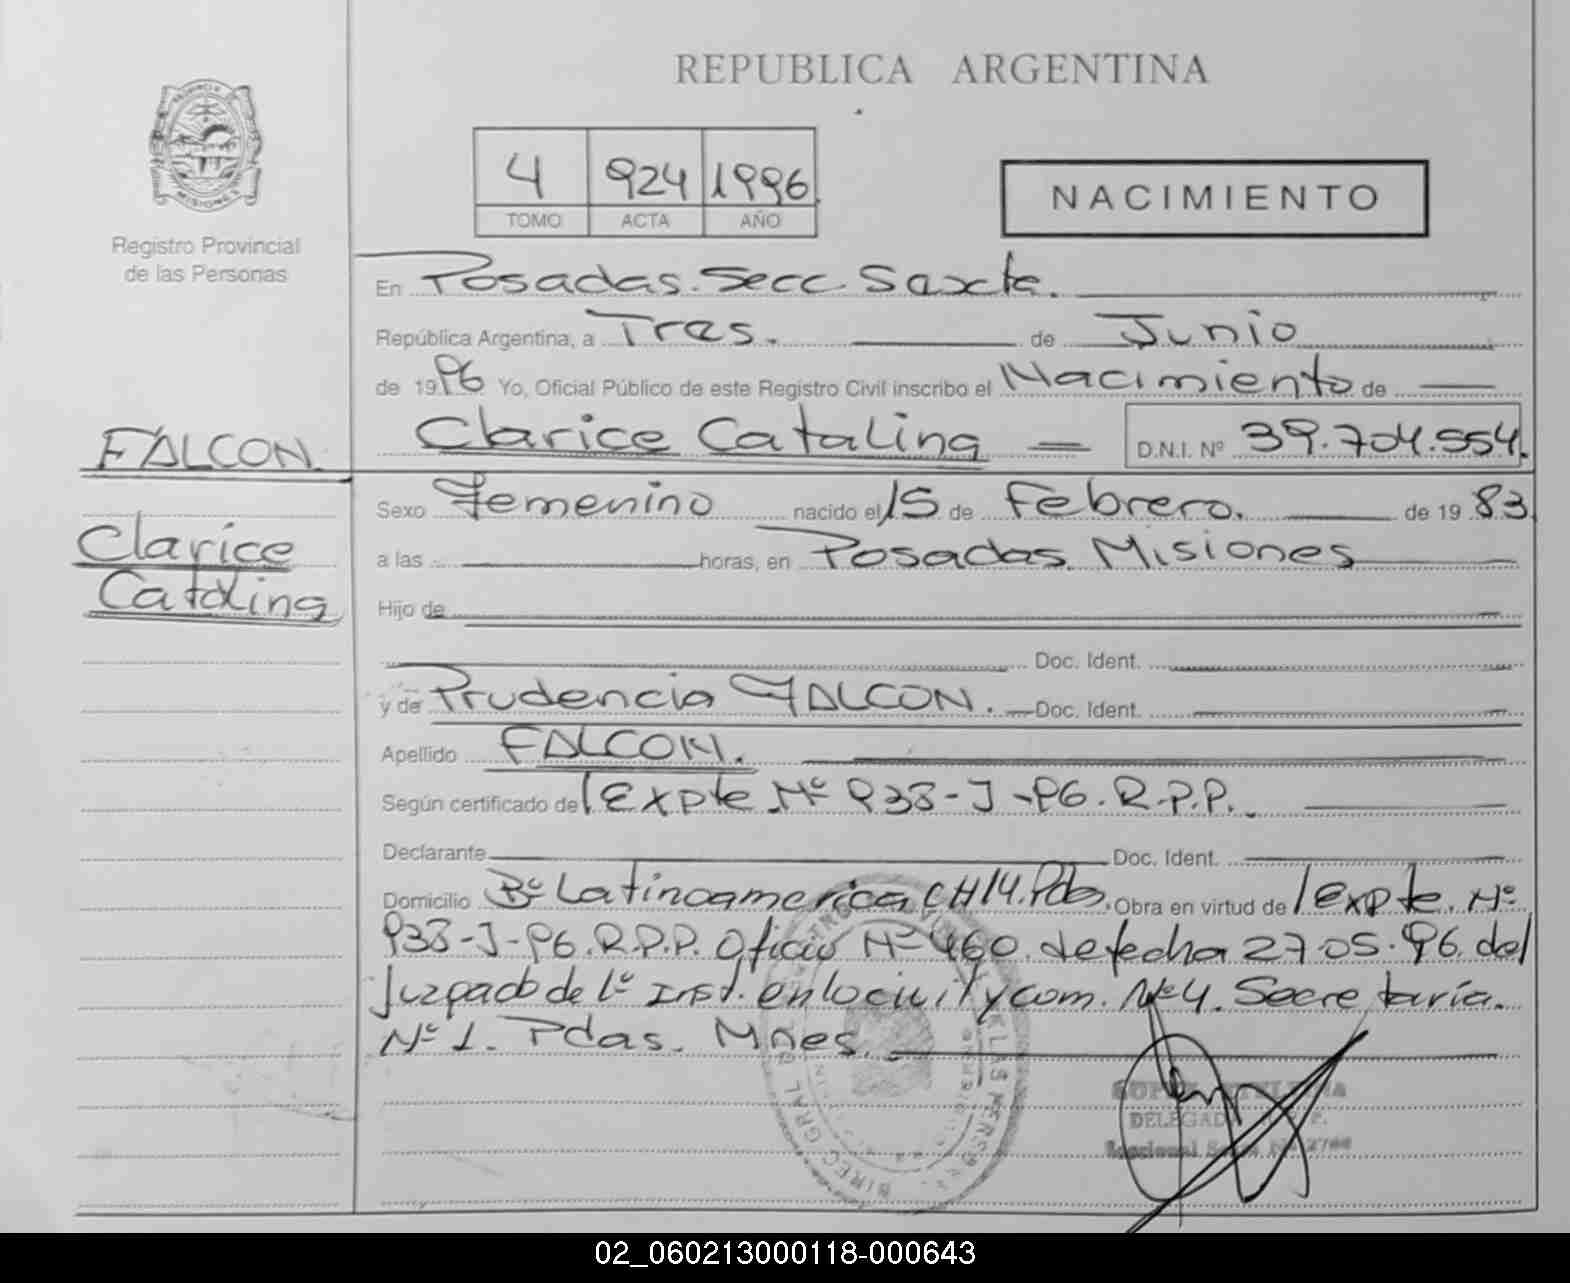 REPUBLICA ARGENTINA
PROVINCIA DE
MISIONES
Registro Provincial
de las Personas
4 924 1996
TOMO ACTA AÑO
NACIMIENTO
En Posadas. Secc Sexta.
República Argentina, a Tres. de Junio
de 1996 Yo, Oficial Público de este Registro Civil inscribo el Nacimiento de
FALCON.
Clarice Catalina D.N.I. Nº 39.704.554.
Clarice
Catalina
Sexo Femenino nacido el 15 de Febrero. de 1983
a las horas, en Posadas Misiones
Hijo de
Doc. Ident.
y de Prudencia FALCON. Doc. Ident.
Apellido FALCON.
Según certificado de Expte. Nº 933-J-96. R.P.P.
Declarante Doc. Ident.
Domicilio Bº Latinoamerica CH14. Pdas. Obra en virtud de Expte. Nº
933-J-96. R.P.P. Oficio Nº 460. de fecha 27.05.96. del
Juzgado de 1º Inst. en lo civil y com. Nº4. Secretaría.
Nº 1. Pdas. Mnes.
DELEGADA
02_060213000118-000643